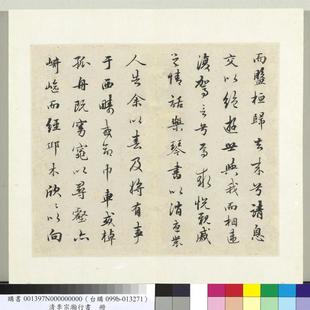 而盤桓歸去來兮請息
交以絕遊世與我而相違
復駕言兮焉求悅親戚
之情話樂琴書以消憂農
人告余以春及將有事
于西疇或命巾車或棹
孤舟既窈窕以尋壑亦
崎嶇而經邱木欣〻以向
購書 001397N000000000 (台購 099b-013271)
清李宗瀚行書 冊